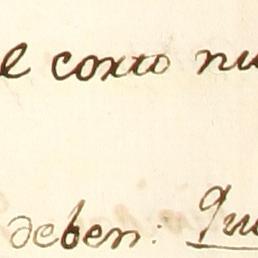 el corto nu
deben: Qu